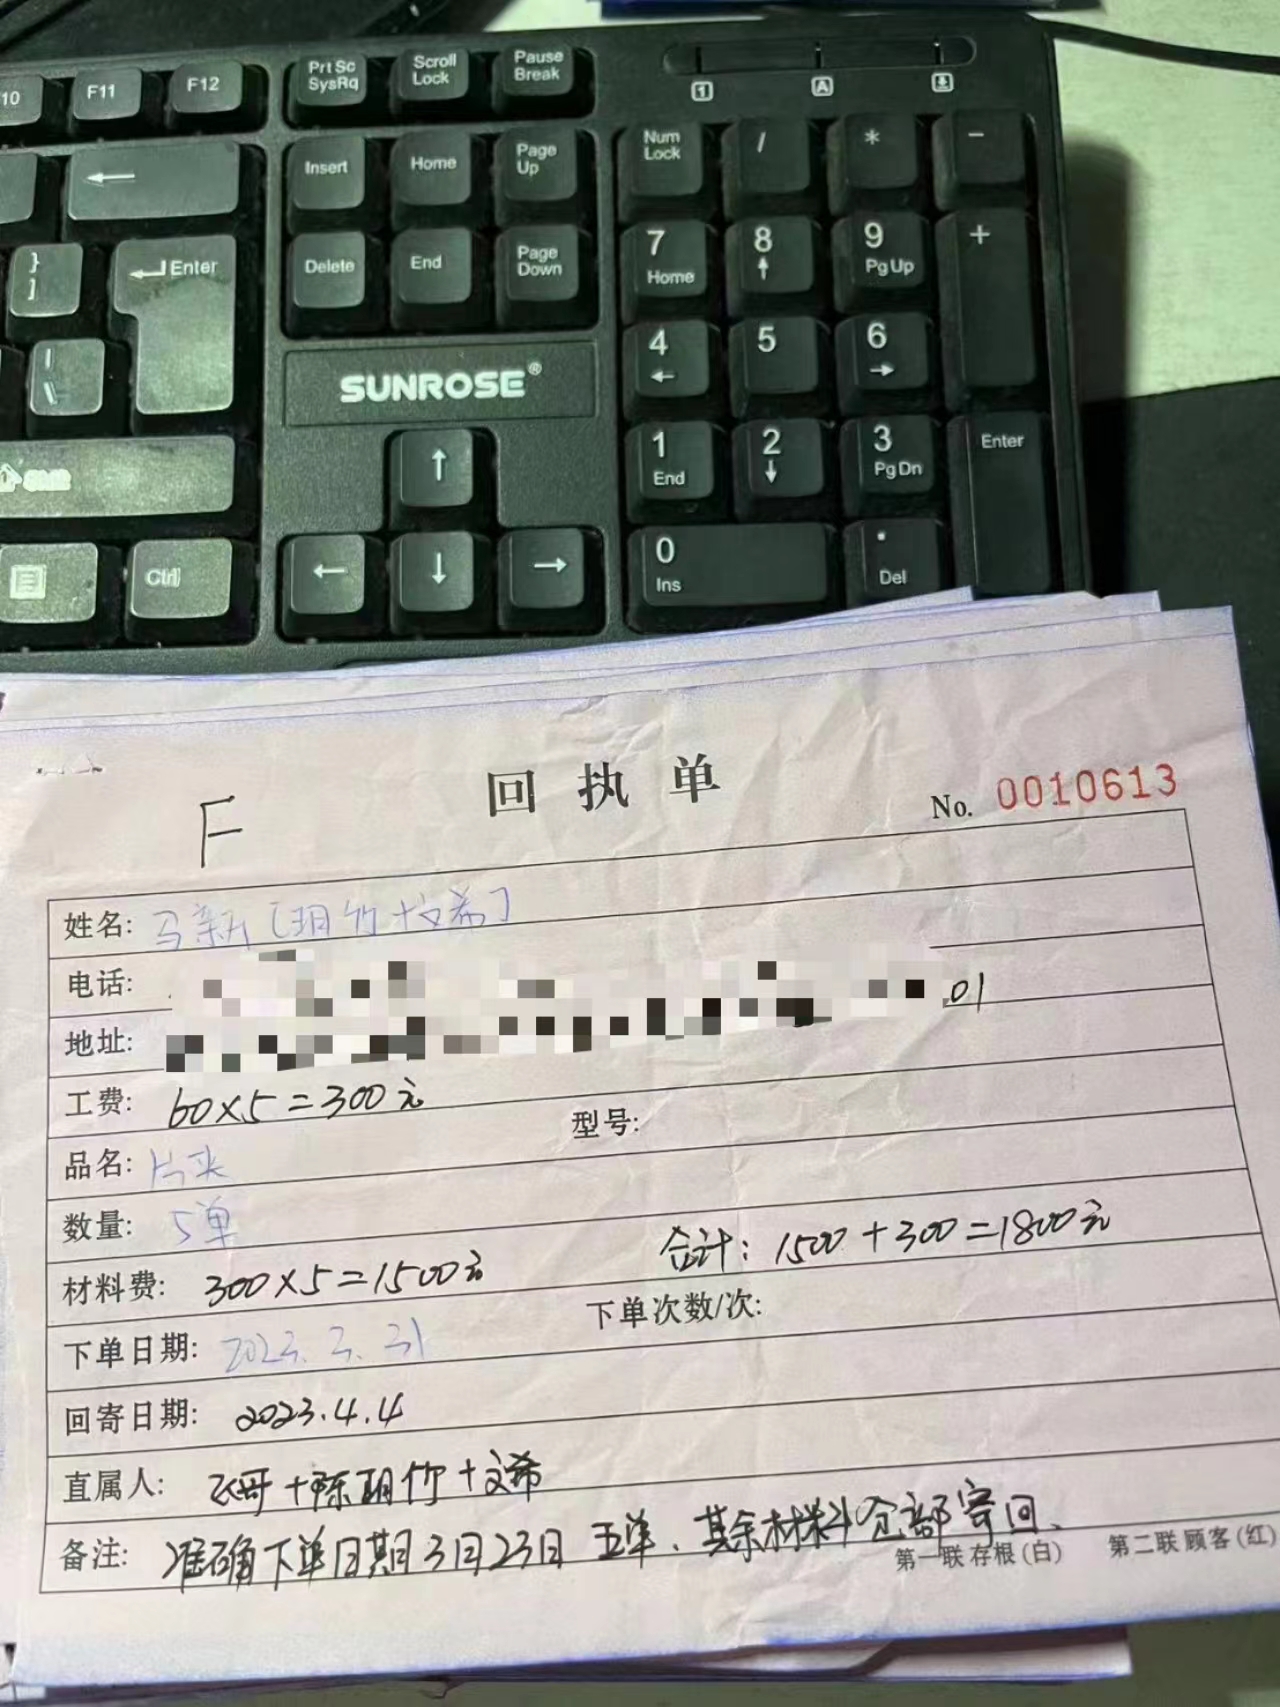 10 F11 F12 Prt Sc SysRq Scroll Lock Pause Break
1 A
Insert Home Page Up Num Lock / * -
Delete End Page Down 7 Home 8 9 Pg Up +
} ]
Enter
4 5 6
| \
SUNROSE®
1 End 2 3 Pg Dn Enter
Ctrl
0 Ins . Del
F
回执单
No. 0010613
姓名: 马新[玥竹+文希]
电话:
01
地址:
工费: 60×5=300元
型号:
品名: 片夹
数量: 5单
材料费: 300×5=1500元
合计: 1500+300=1800元
下单日期: 2023.3.31
下单次数/次:
回寄日期: 2023.4.4
直属人: 飞哥+陈玥竹+文希
备注: 准确下单日期3月23日 五单、其余材料全部寄回、
第一联存根(白) 第二联顾客(红)